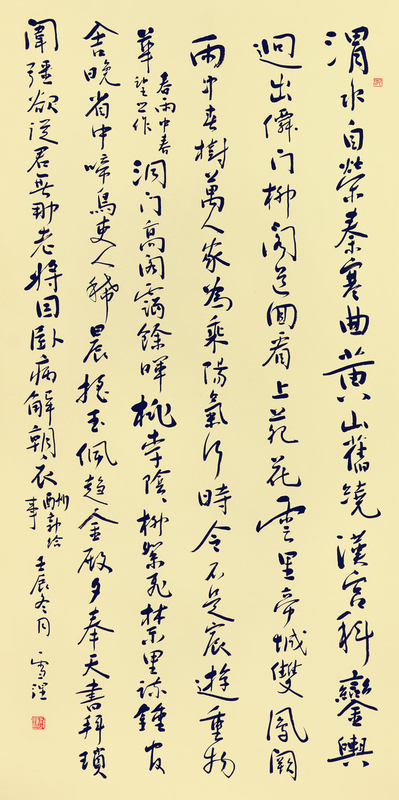 渭水自縈秦塞曲黄山舊繞漢宫斜鑾輿
迥出僊門柳閣道回看上苑花雲里帝城雙鳳闕
雨中春樹萬人家為乘陽氣行時令不是宸遊重物
華春雨中春望之作洞门高阁靄餘暉桃李陰陰柳絮飛禁里疏鐘官
舍晚省中啼鳥吏人稀晨摇玉佩趨金殿夕奉天書拜瑣
闈强欲從君無那老將因卧病解朝衣酬郭給事壬辰冬月